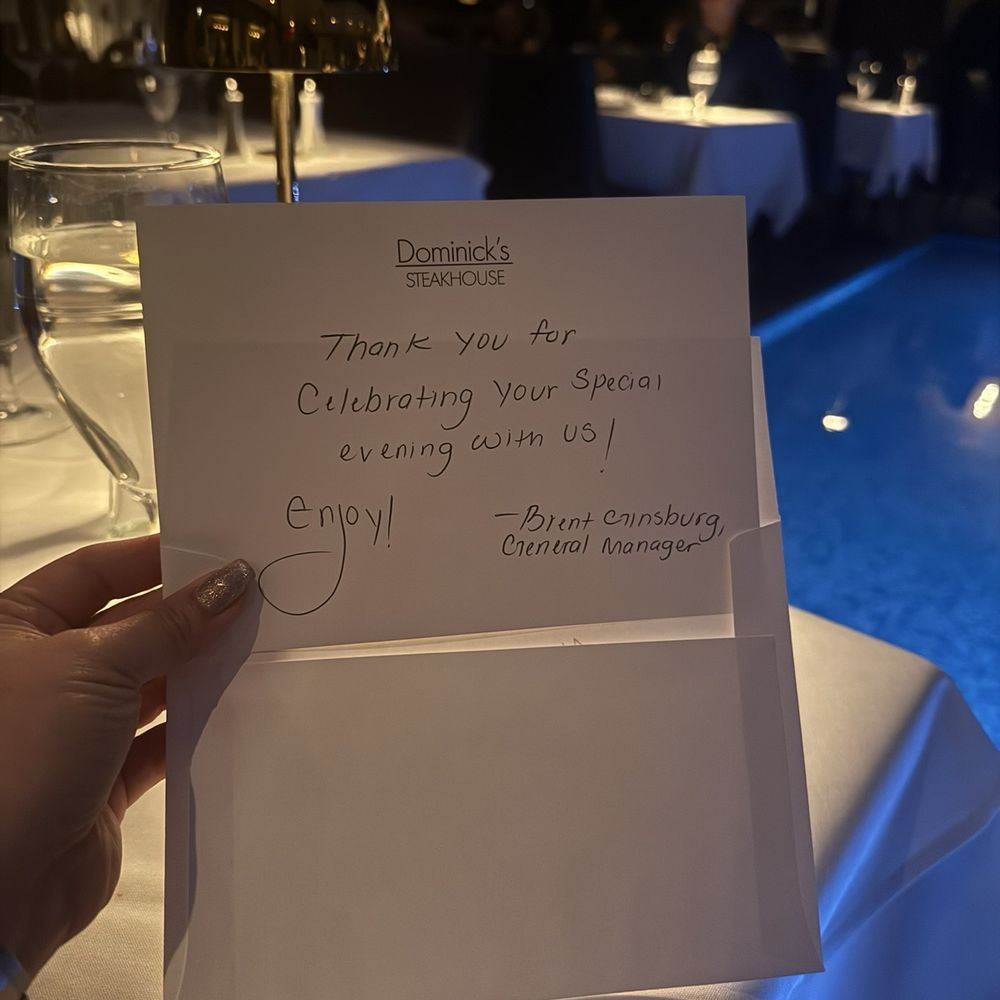 Dominick's
STEAKHOUSE
Thank you for
Celebrating your special
evening with us!
Enjoy!
—Brent Ginsburg,
General Manager